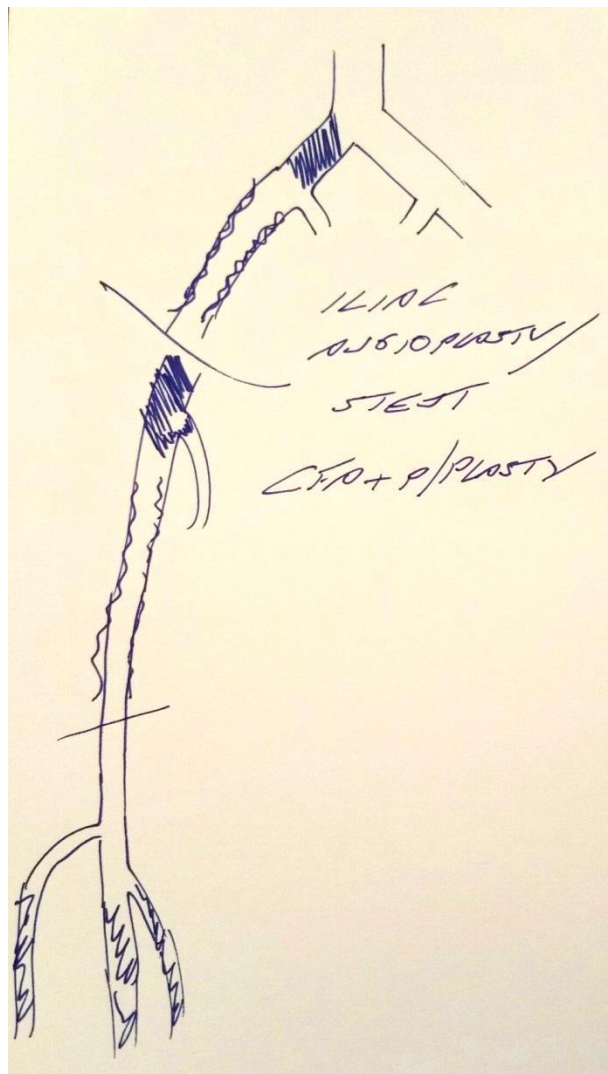 ILIAC
ANGIOPLASTY/
STENT
CFA + P/PLASTY